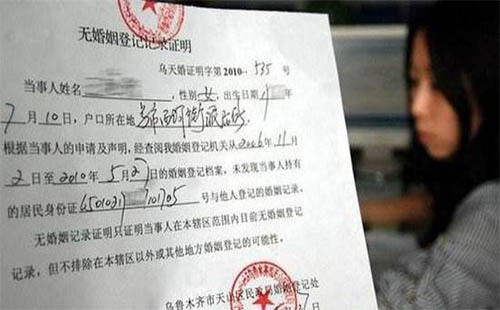 无婚姻登记记录证明
乌天婚证明字第2010--535 号
当事人姓名 ,性别 女 ,出生日期 年
7 月 10 日,户口所在地
根据当事人的申请及声明,经查阅我婚姻登记机关从2006年11月
2 日至2010年5月27日的婚姻登记档案,未发现当事人持有
的居民身份证 号与他人登记的婚姻记录。
无婚姻记录证明只证明当事人在本辖区范围内目前无婚姻登记
记录,但不排除在本辖区以外或其他地方婚姻登记的可能性。
乌鲁木齐市天山区民政局婚姻登记处